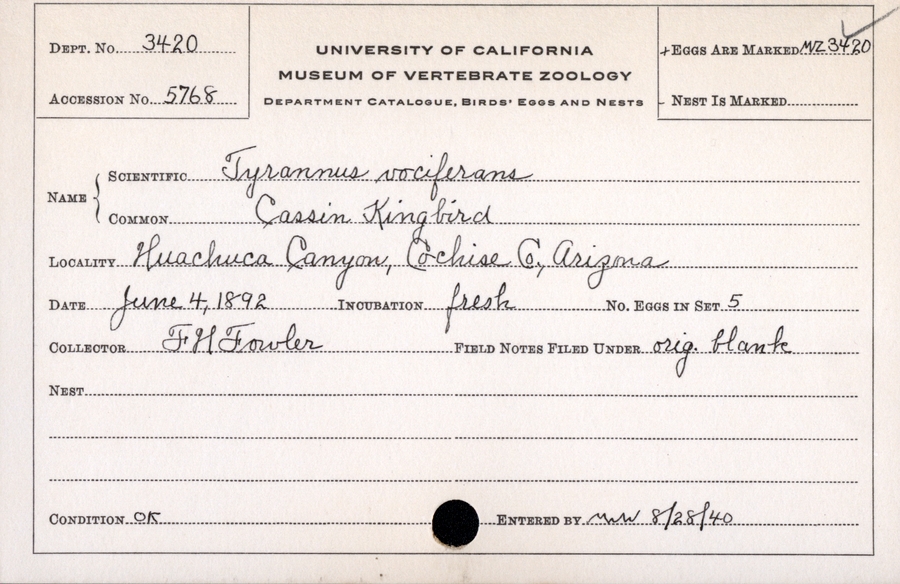 DEPT. No. 3420
ACCESSION No. 5768
UNIVERSITY OF CALIFORNIA
MUSEUM OF VERTEBRATE ZOOLOGY
DEPARTMENT CATALOGUE, BIRDS' EGGS AND NESTS
EGGS ARE MARKED MZ3420
NEST IS MARKED
NAME
SCIENTIFIC Tyrannus vociferans
COMMON Cassin Kingbird
LOCALITY Huachuca Canyon, Cochise Co., Arizona
DATE June 4, 1892 INCUBATION fresh No. EGGS IN SET 5
COLLECTOR F H Fowler FIELD NOTES FILED UNDER orig. blank
NEST
CONDITION OK ENTERED BY 8/28/40